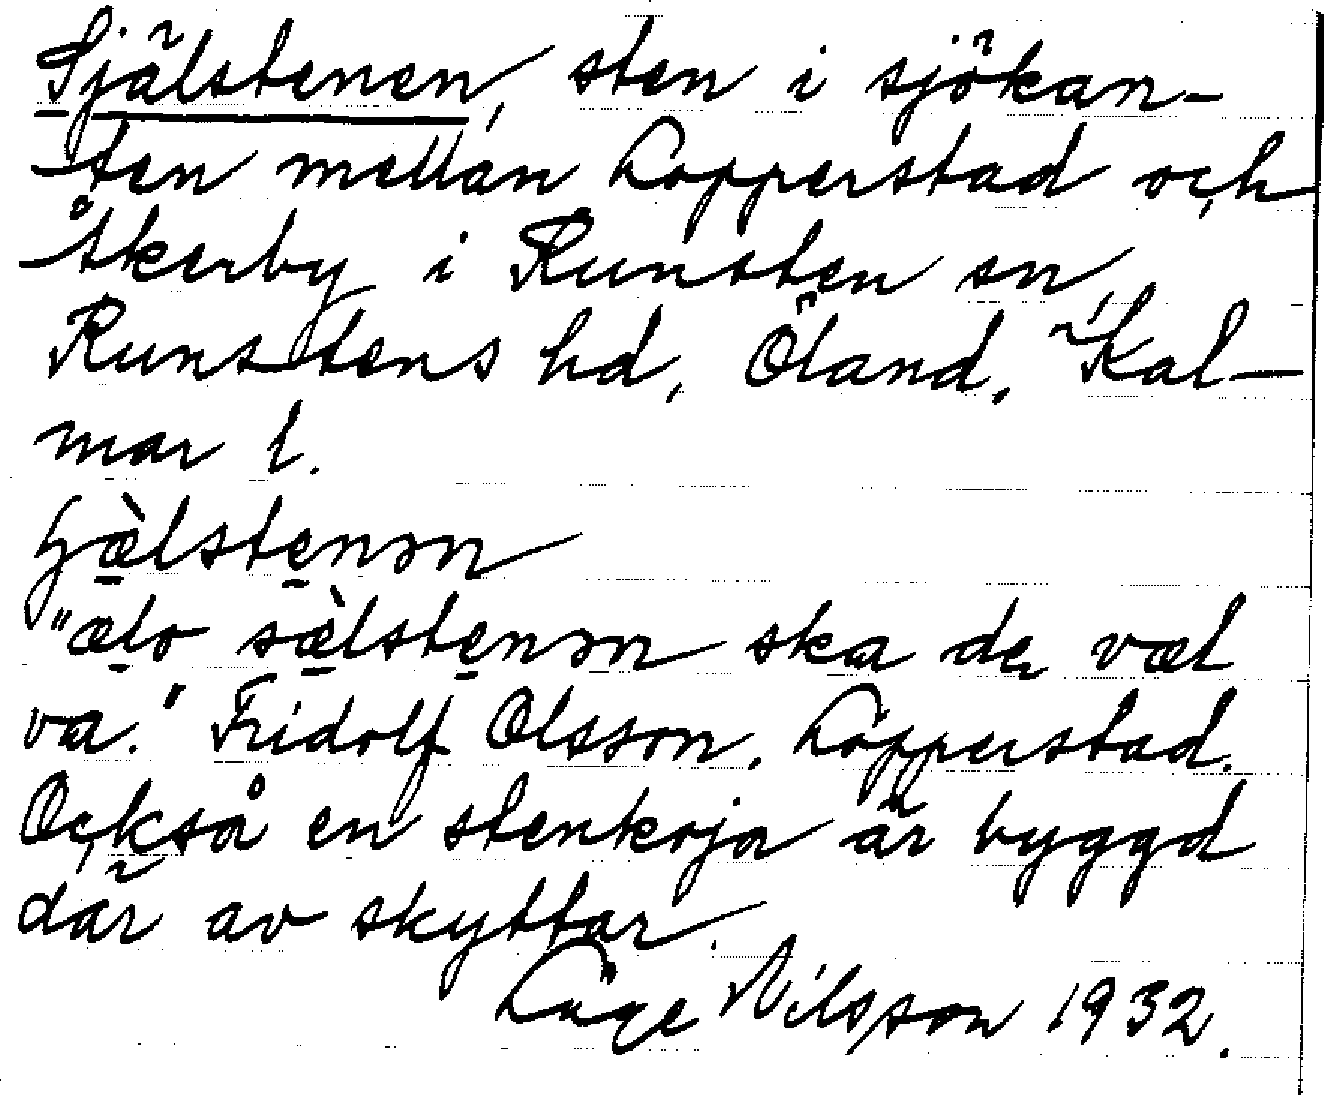 Själstenen, sten i sjökan-
ten mellan Lopperstad och
Åkerby i Runsten sn,
Runstens hd, Öland, Kal-
mar l.
hjæ̀lstenən
"ælr sæ̀lstenən ska de væl
va." Fridolf Olsson, Lopperstad.
Också en stenkoja är byggd
där av skyttar.
Låge Nilsson 1932.